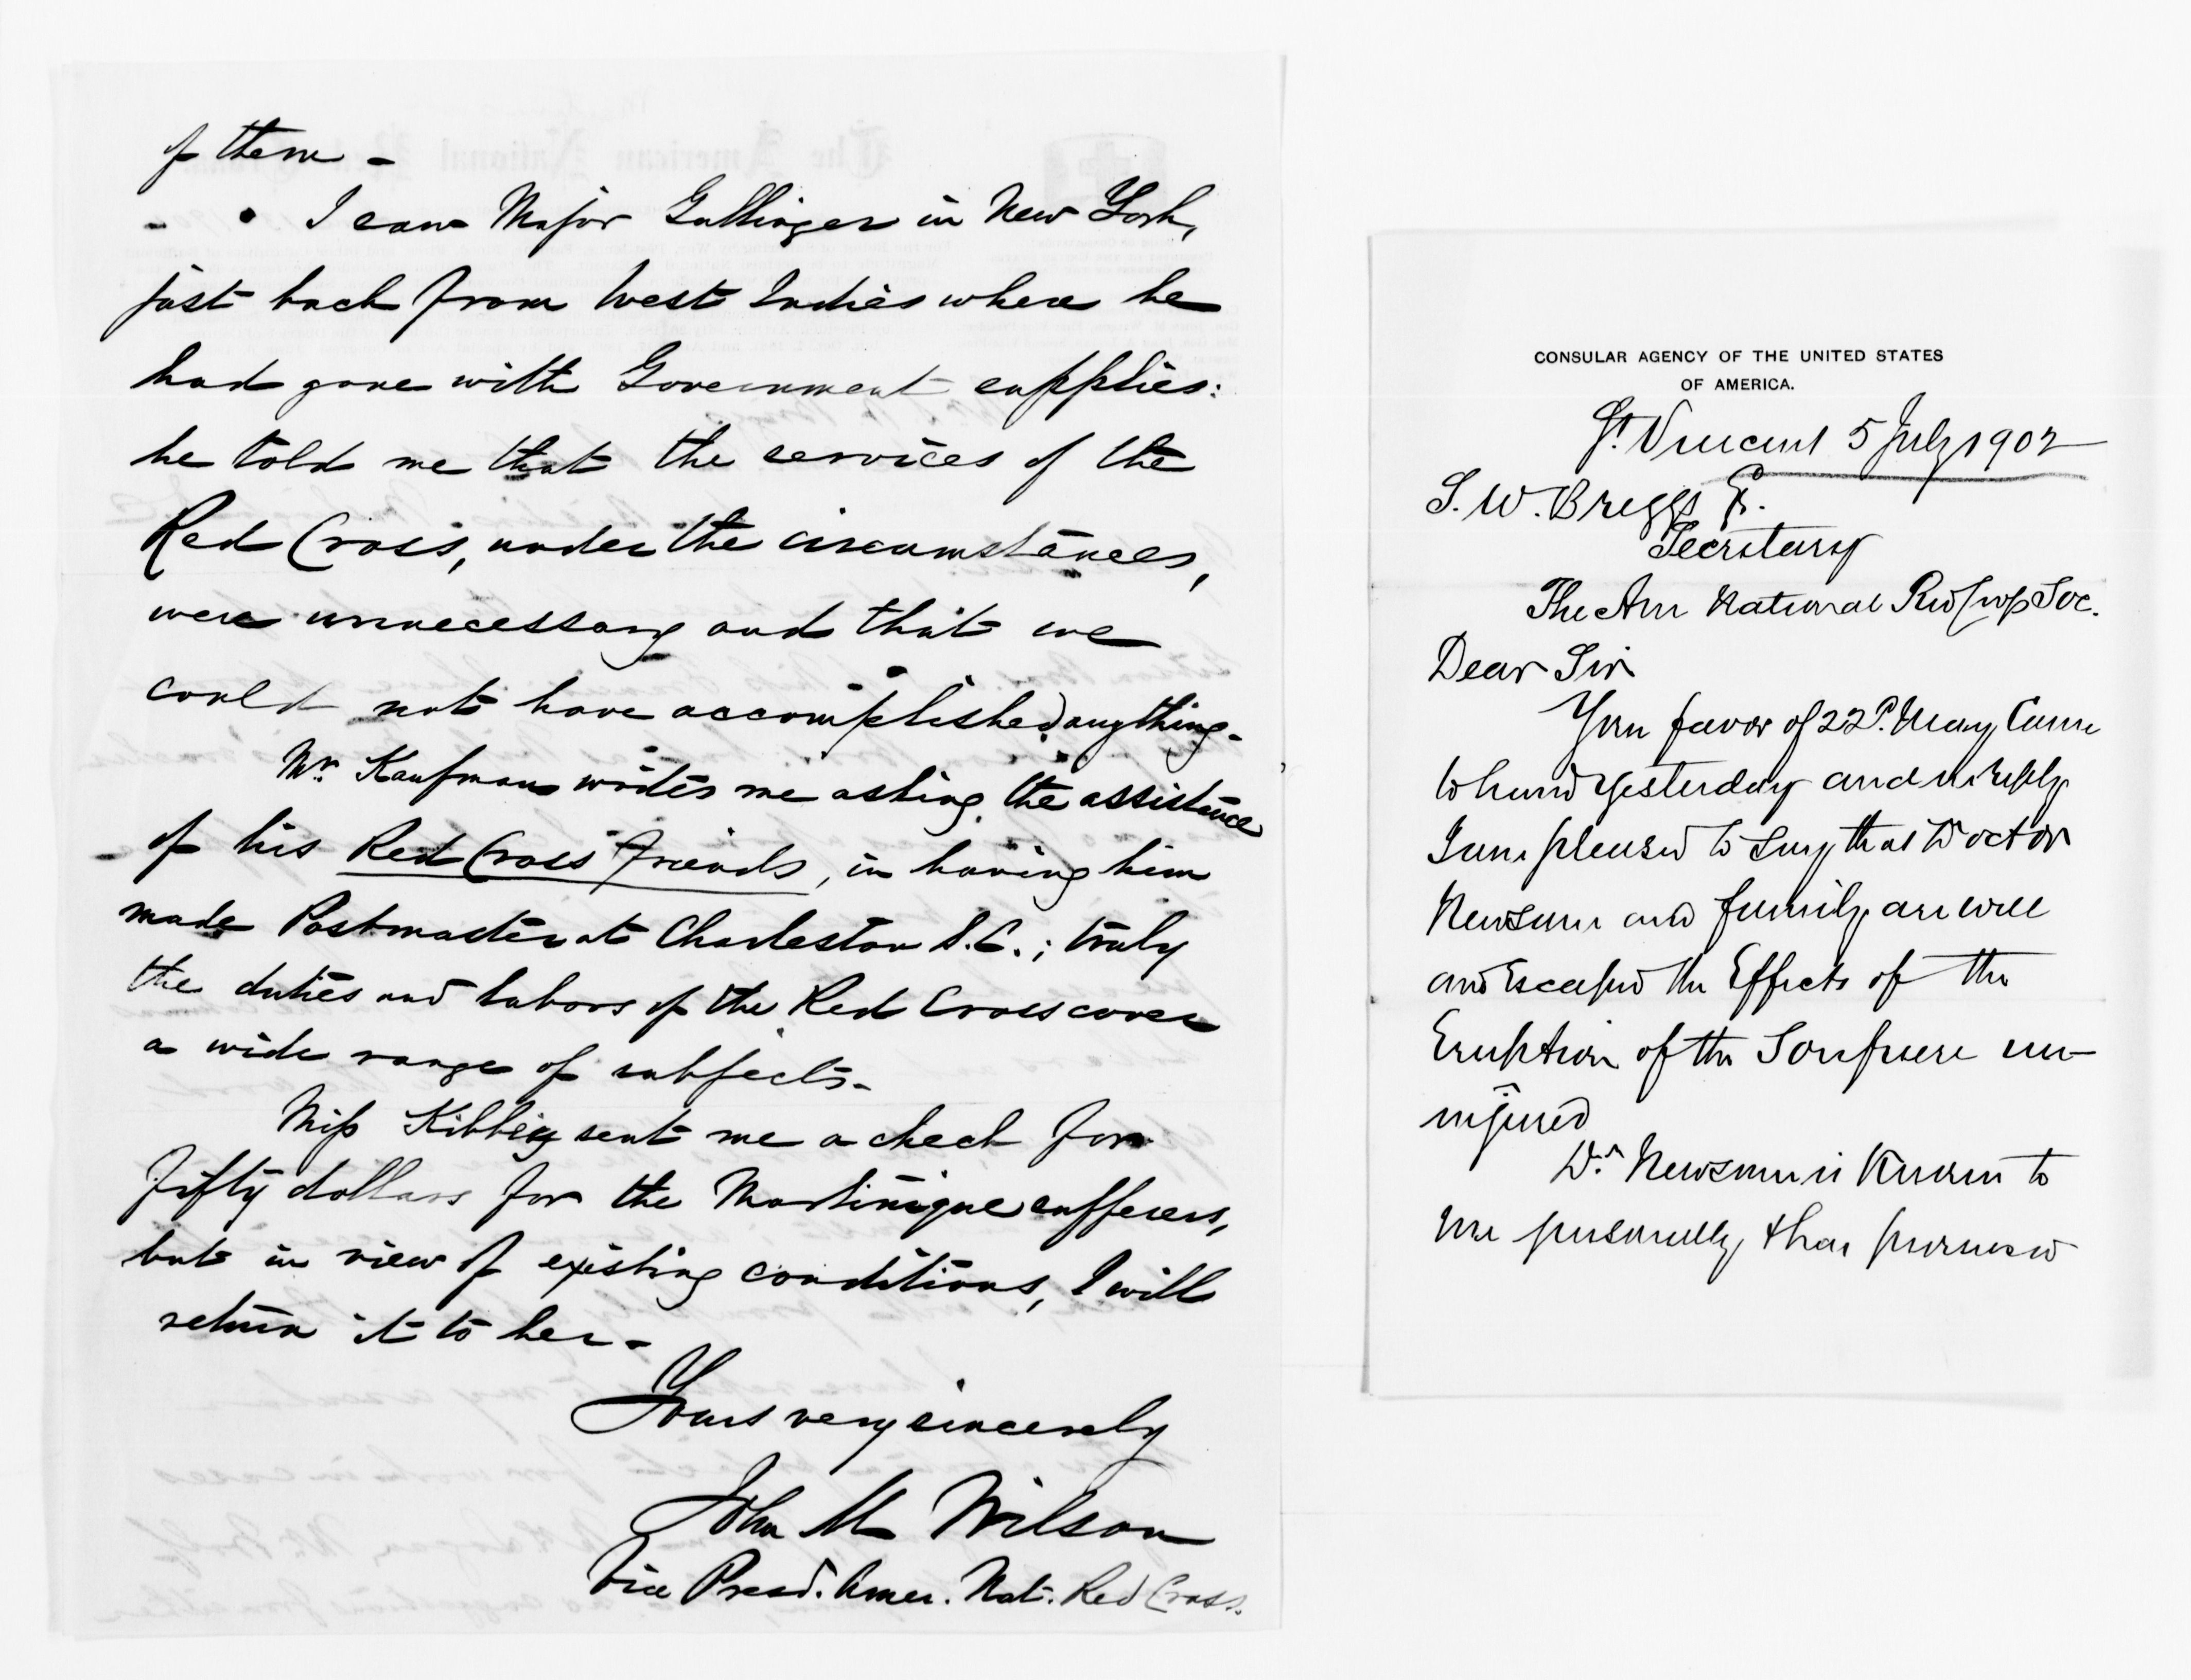 of them -
I saw Major Gallinger in New York,
just back from West Indies where he
had gone with Government supplies:
he told me that the services of the
Red Cross, under the circumstances,
were unnecessary and that we
could not have accomplished anything-
Mr. Kaufman writes me asking the assistance
of his Red Cross friends, in having him
made Postmaster at Charleston S.C.; truly
the duties and labors of the Red Cross cover
a wide range of subjects-
Miss Kibbey sent me a check for
fifty dollars for the Martinique sufferers,
but in view of existing conditions, I will
return it to her-
Yours very sincerely
John M Wilson
Vice Presd. Amer. Nat. Red Cross.
CONSULAR AGENCY OF THE UNITED STATES
OF AMERICA.
St. Vincent 5 July 1902
S. W. Briggs
Secretary
The Am National Red Cross Soc.
Dear Sir
Your favor of 22d. May Came
to hand yesterday and in reply
I am pleased to say that Doctor
Newsam and family are well
and Escaped the Effects of the
Eruption of the Soufriere un-
injured
Dr. Newsam is Known to
me personally, & has